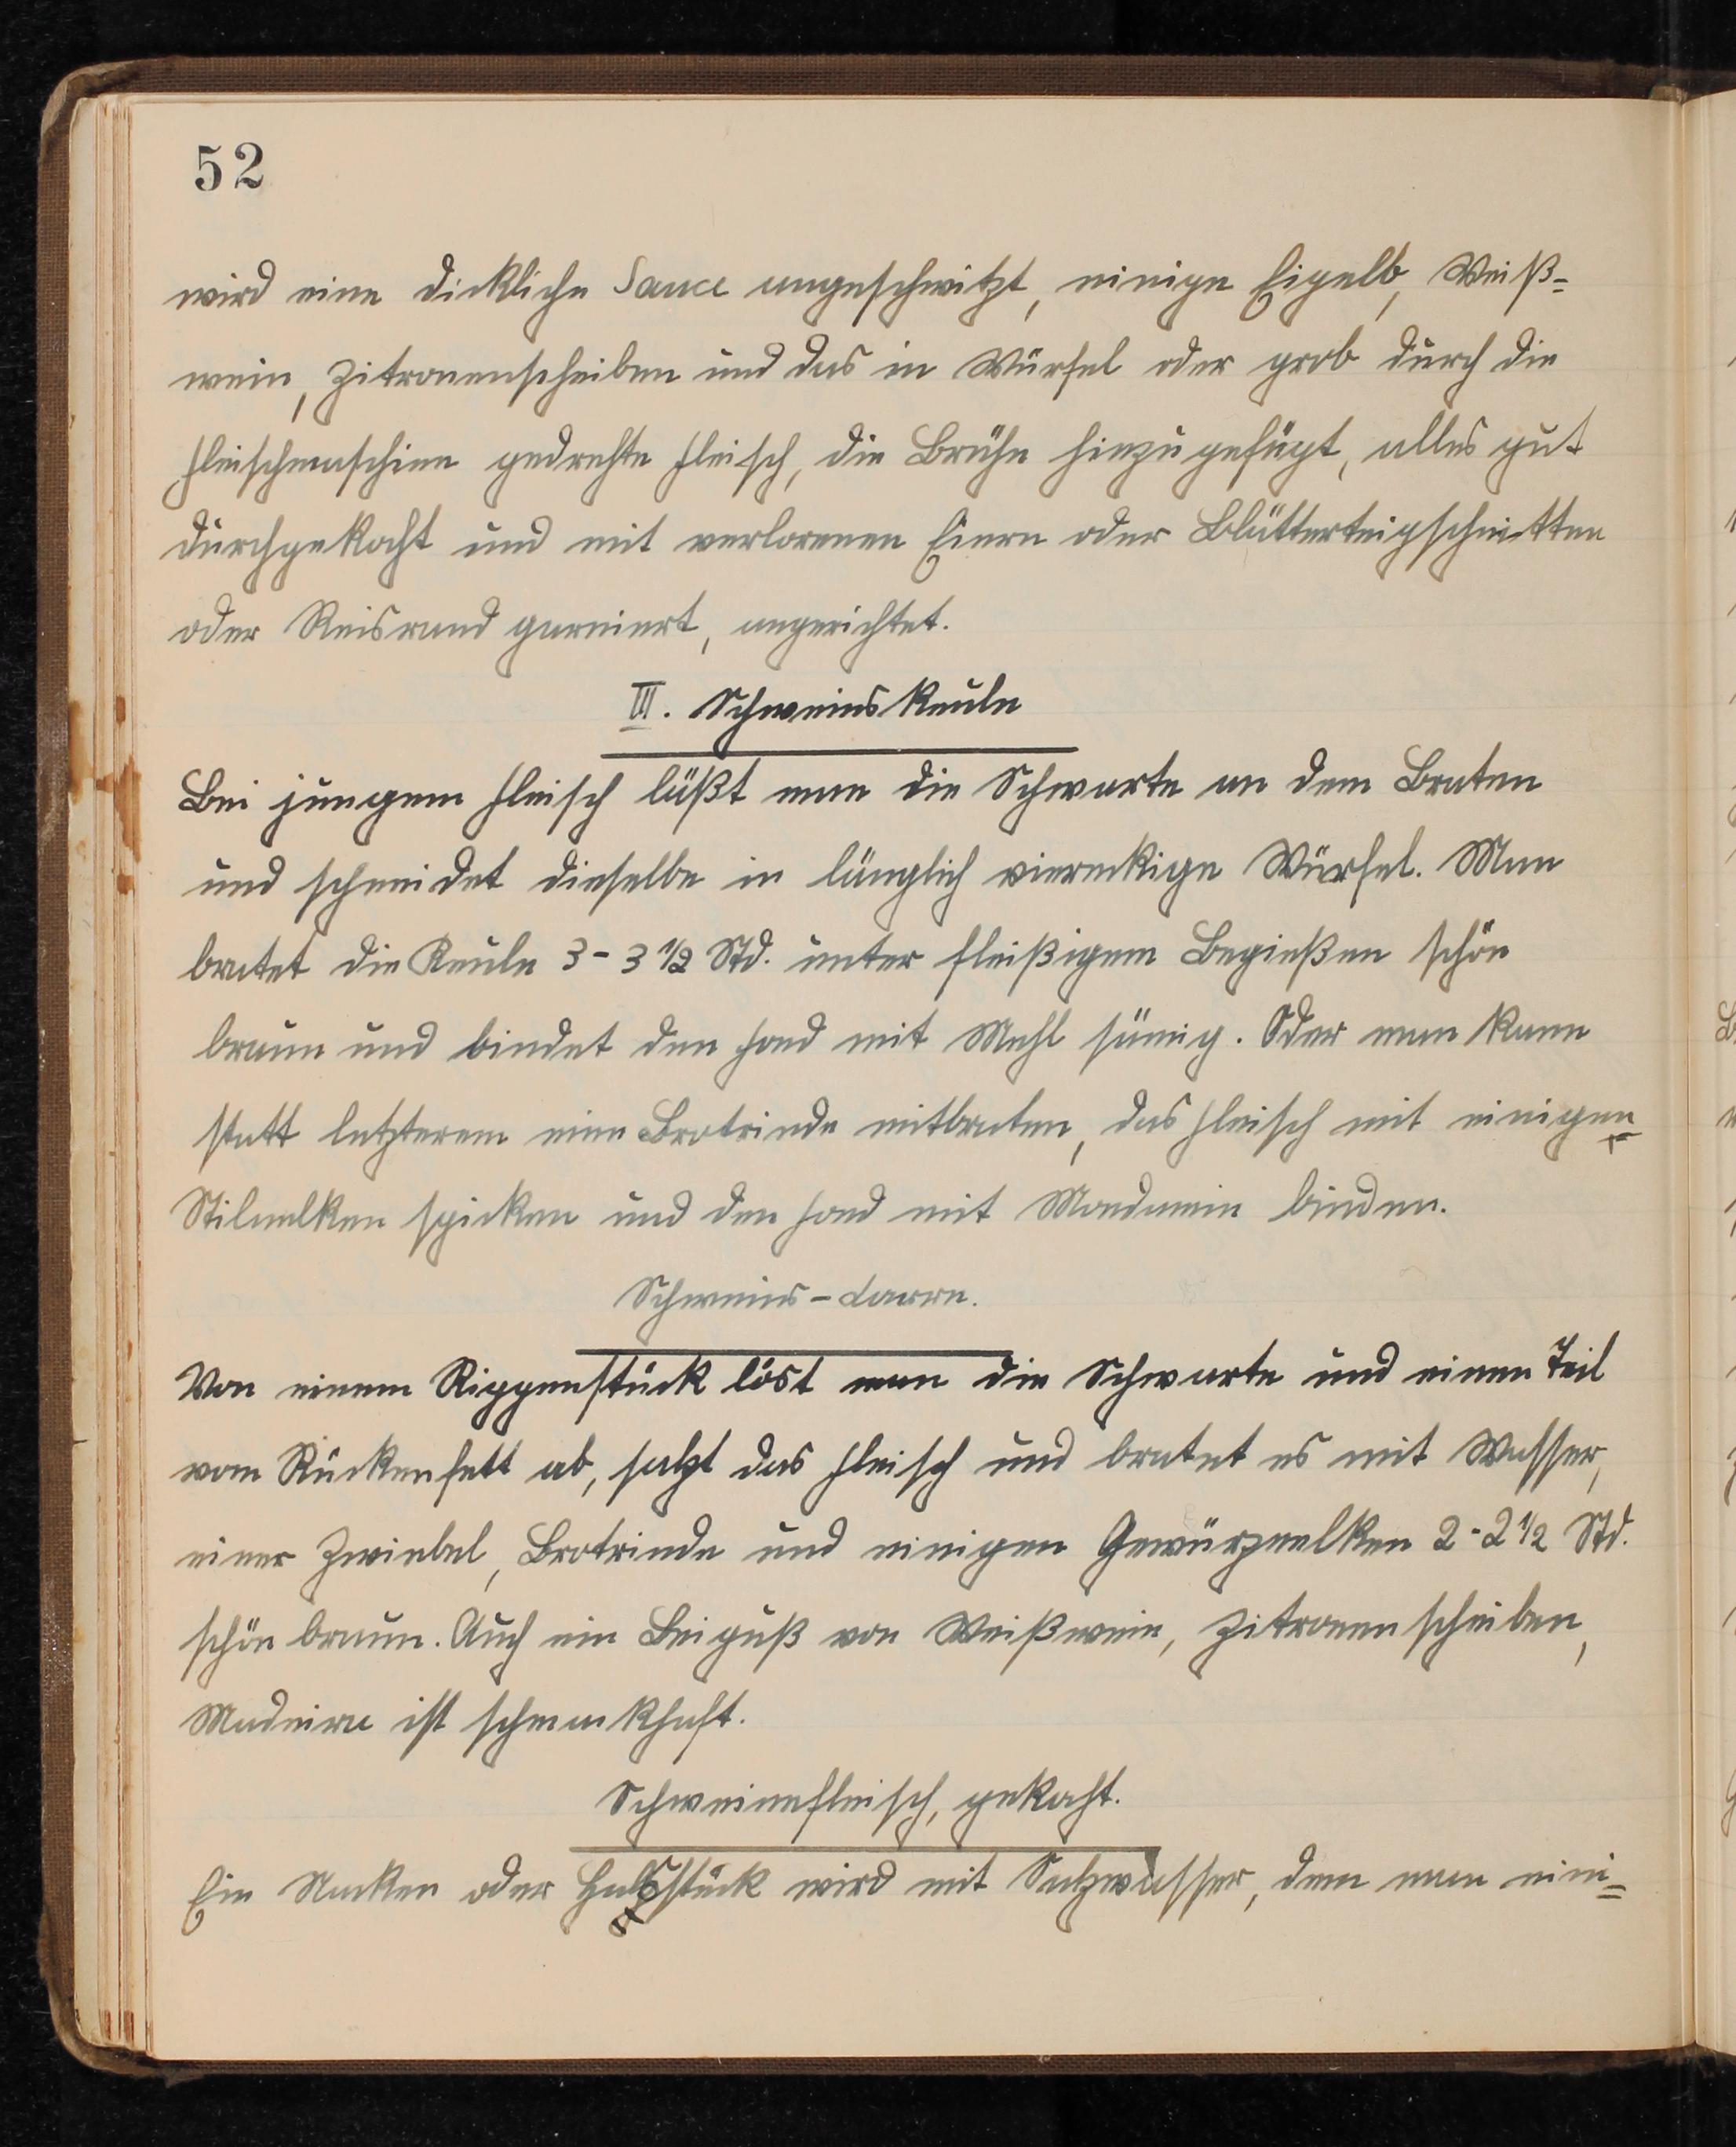 52
wird eine dickliche Sauce angeschwitzt, einige Eigelb, Weiß=
wein, Zitronenscheiben und das in Würfel oder grob durch die
Fleischmaschine gedrehte Fleisch, die Brühe hinzugefügt, alles gut
durchgekocht und mit verlorenen Eiern oder Blätterteigschnitten
oder Reisrand garniert, angerichtet.
III. Schweinskeule
Bei jungem Fleisch läßt man die Schwarte an dem Braten
und schneidet dieselbe in länglich viereckige Würfel. Man
bratet die Keule 3-3 1/2 Std. unter fleißigem Begießen schön
braun und bindet den Fond mit Mehl sämig. Oder man kann
statt letzterem eine Brotrinde mitbraten, das Fleisch mit einigen
Stilnelken spicken und den Fond mit Mondamin binden.
Schweins-Carre.
Von einem Rippenstück löst man die Schwarte und einen Teil
vom Rückenfett ab, salzt das Fleisch und bratet es mit Wasser,
einer Zwiebel, Brotrinde und einigen Gewürznelken 2-2 1/2 Std.
schön braun. Auch ein Beiguß von Weißwein, Zitronenscheiben,
Madeira ist schmackhaft.
Schweinefleisch, gekocht.
Ein Nacken oder Halsstück wird mit Salzwasser, dem man eini=